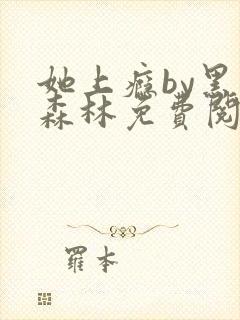 她上瘾by黑
森林免费阅
羅本